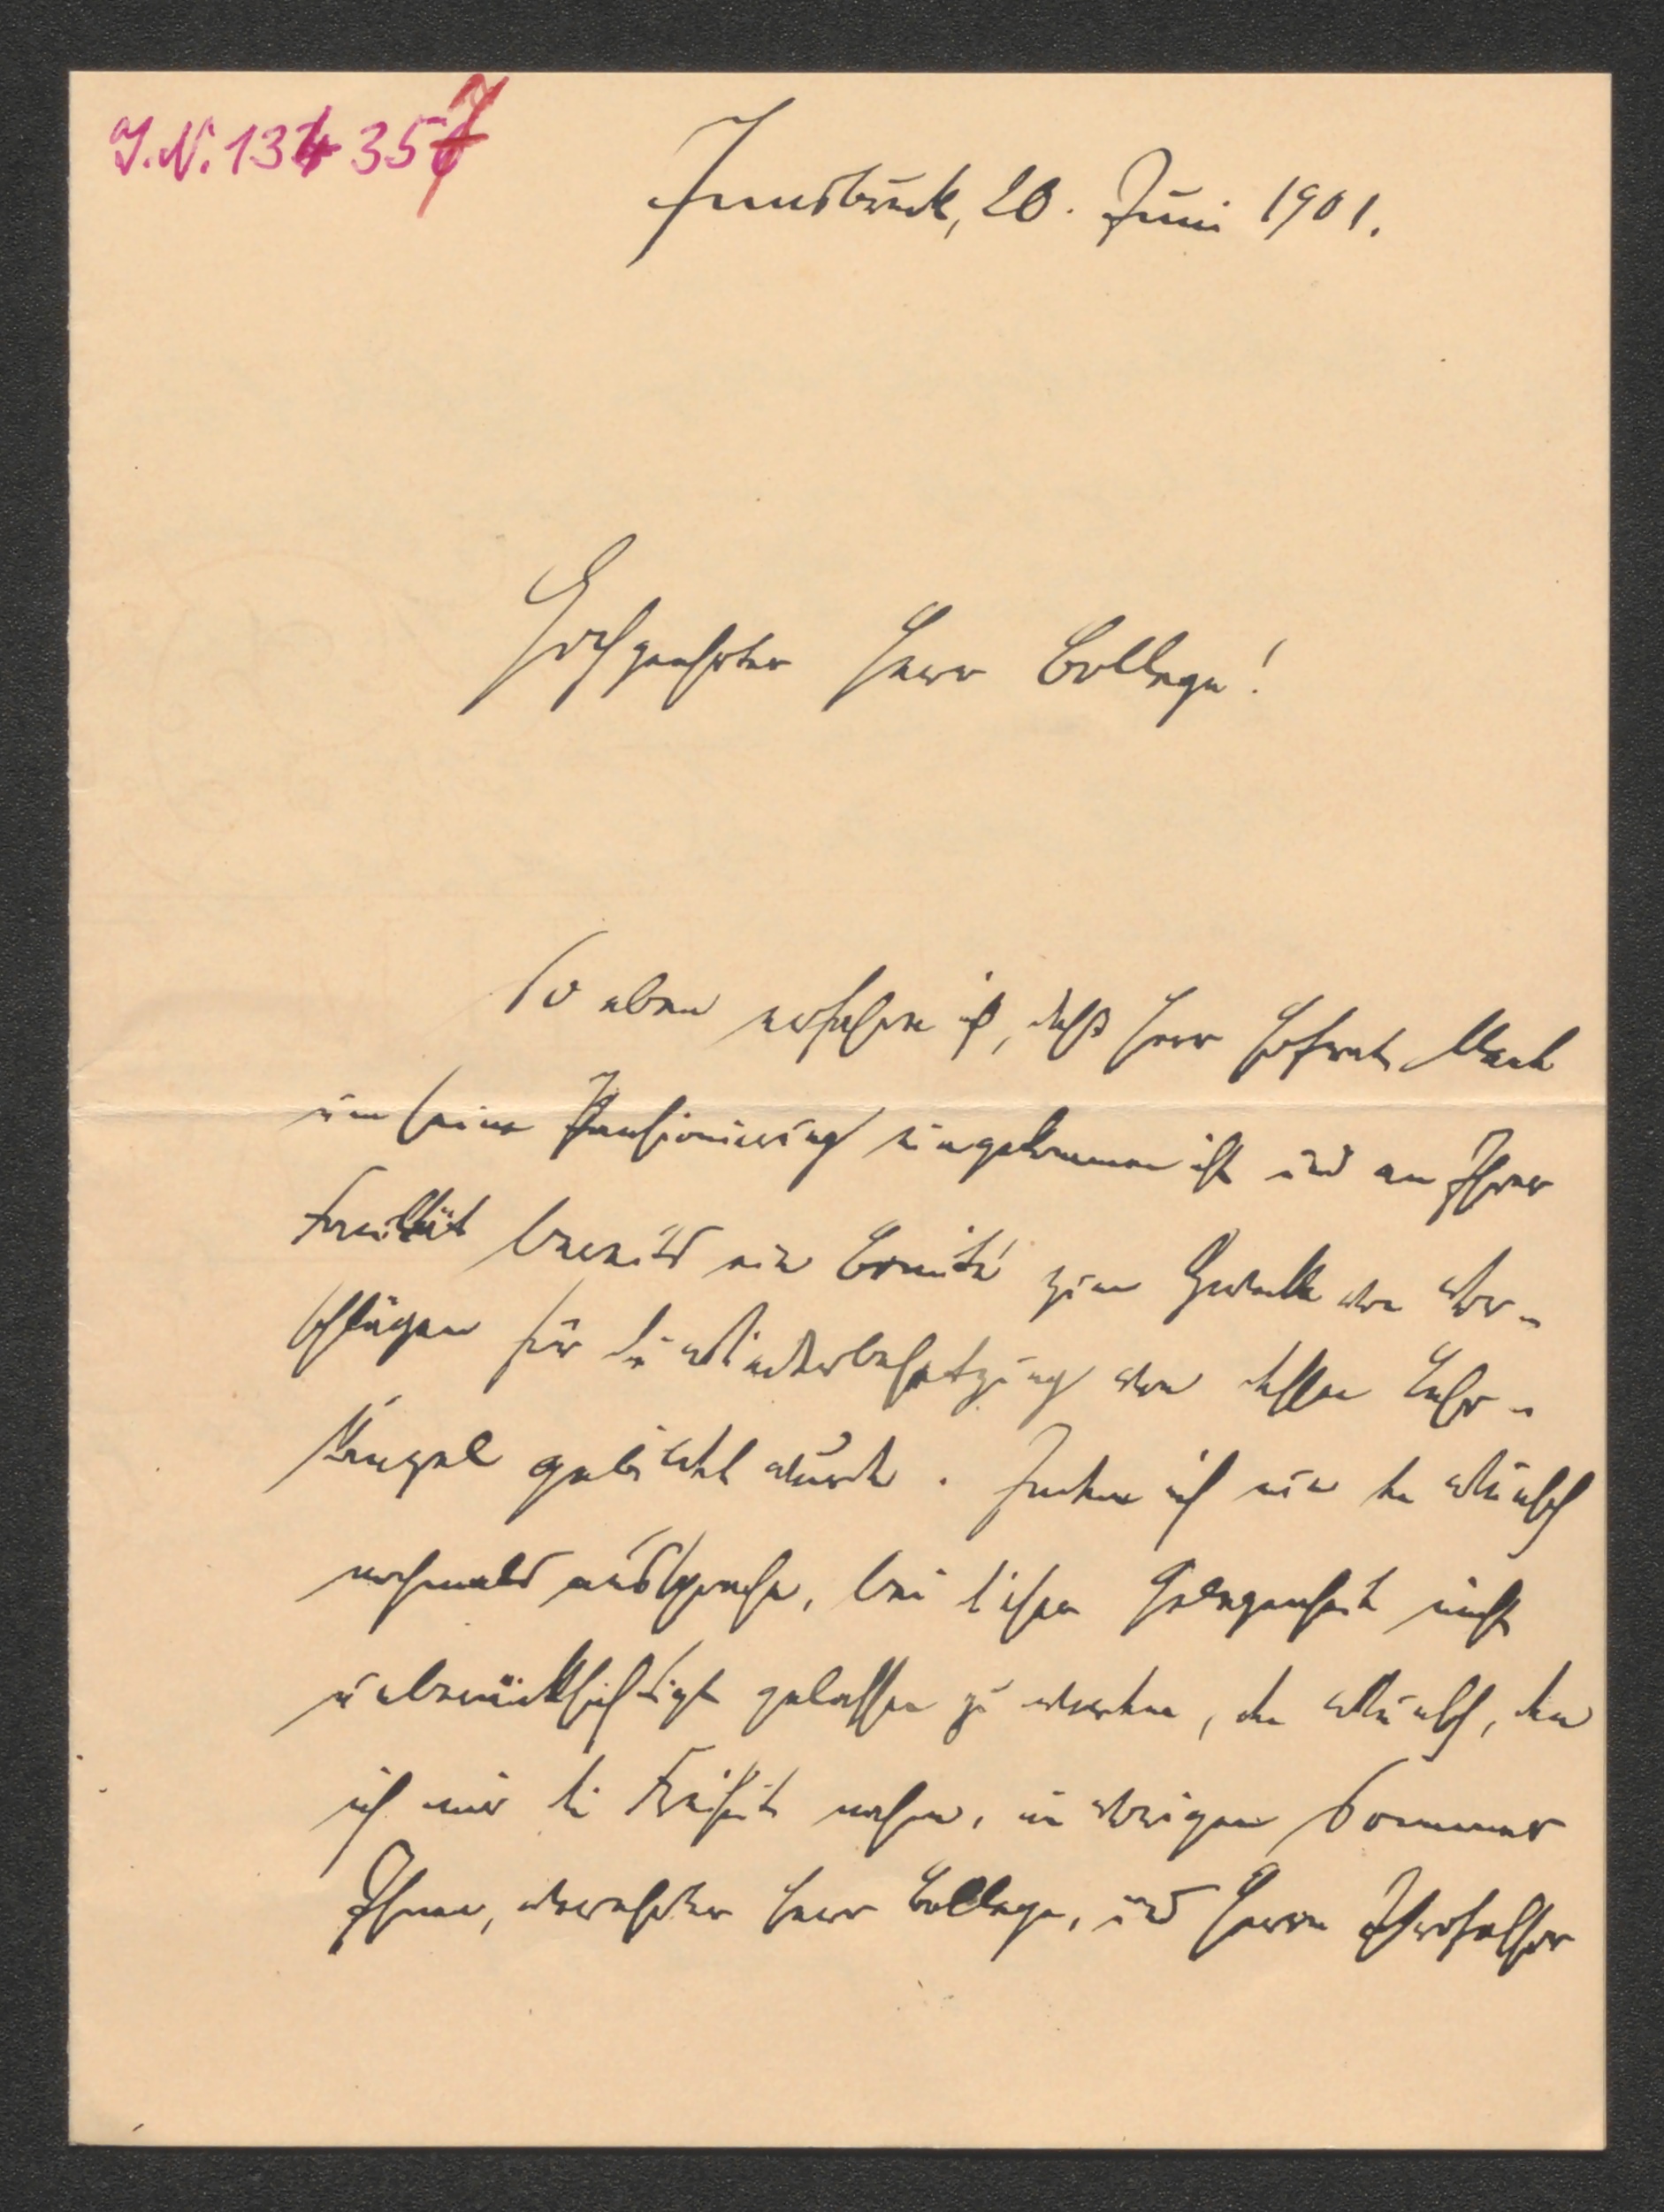 J.N. 134357
Innsbruck, 20. Juni 1901.
Hochgeehrter Herr College!
So eben erfahre ich, daß Herr Hofrat Mach
um seine Pensionierung eingekommen ist und an Ihrer
Facultät bereits ein Comité zum Zwecke von Vor-
schlägen für die Wiederbesetzung von dessen Lehr-
kanzel gebildet wurde. Indem ich nun den Wunsch
nochmals ausspreche, bei dieser Gelegenheit nicht
unberücksichtigt gelassen zu werden, den Wunsch, den
ich mir die Freiheit nahm, im vorigen Sommer
Ihnen, verehrter Herr College, und Herrn Professor